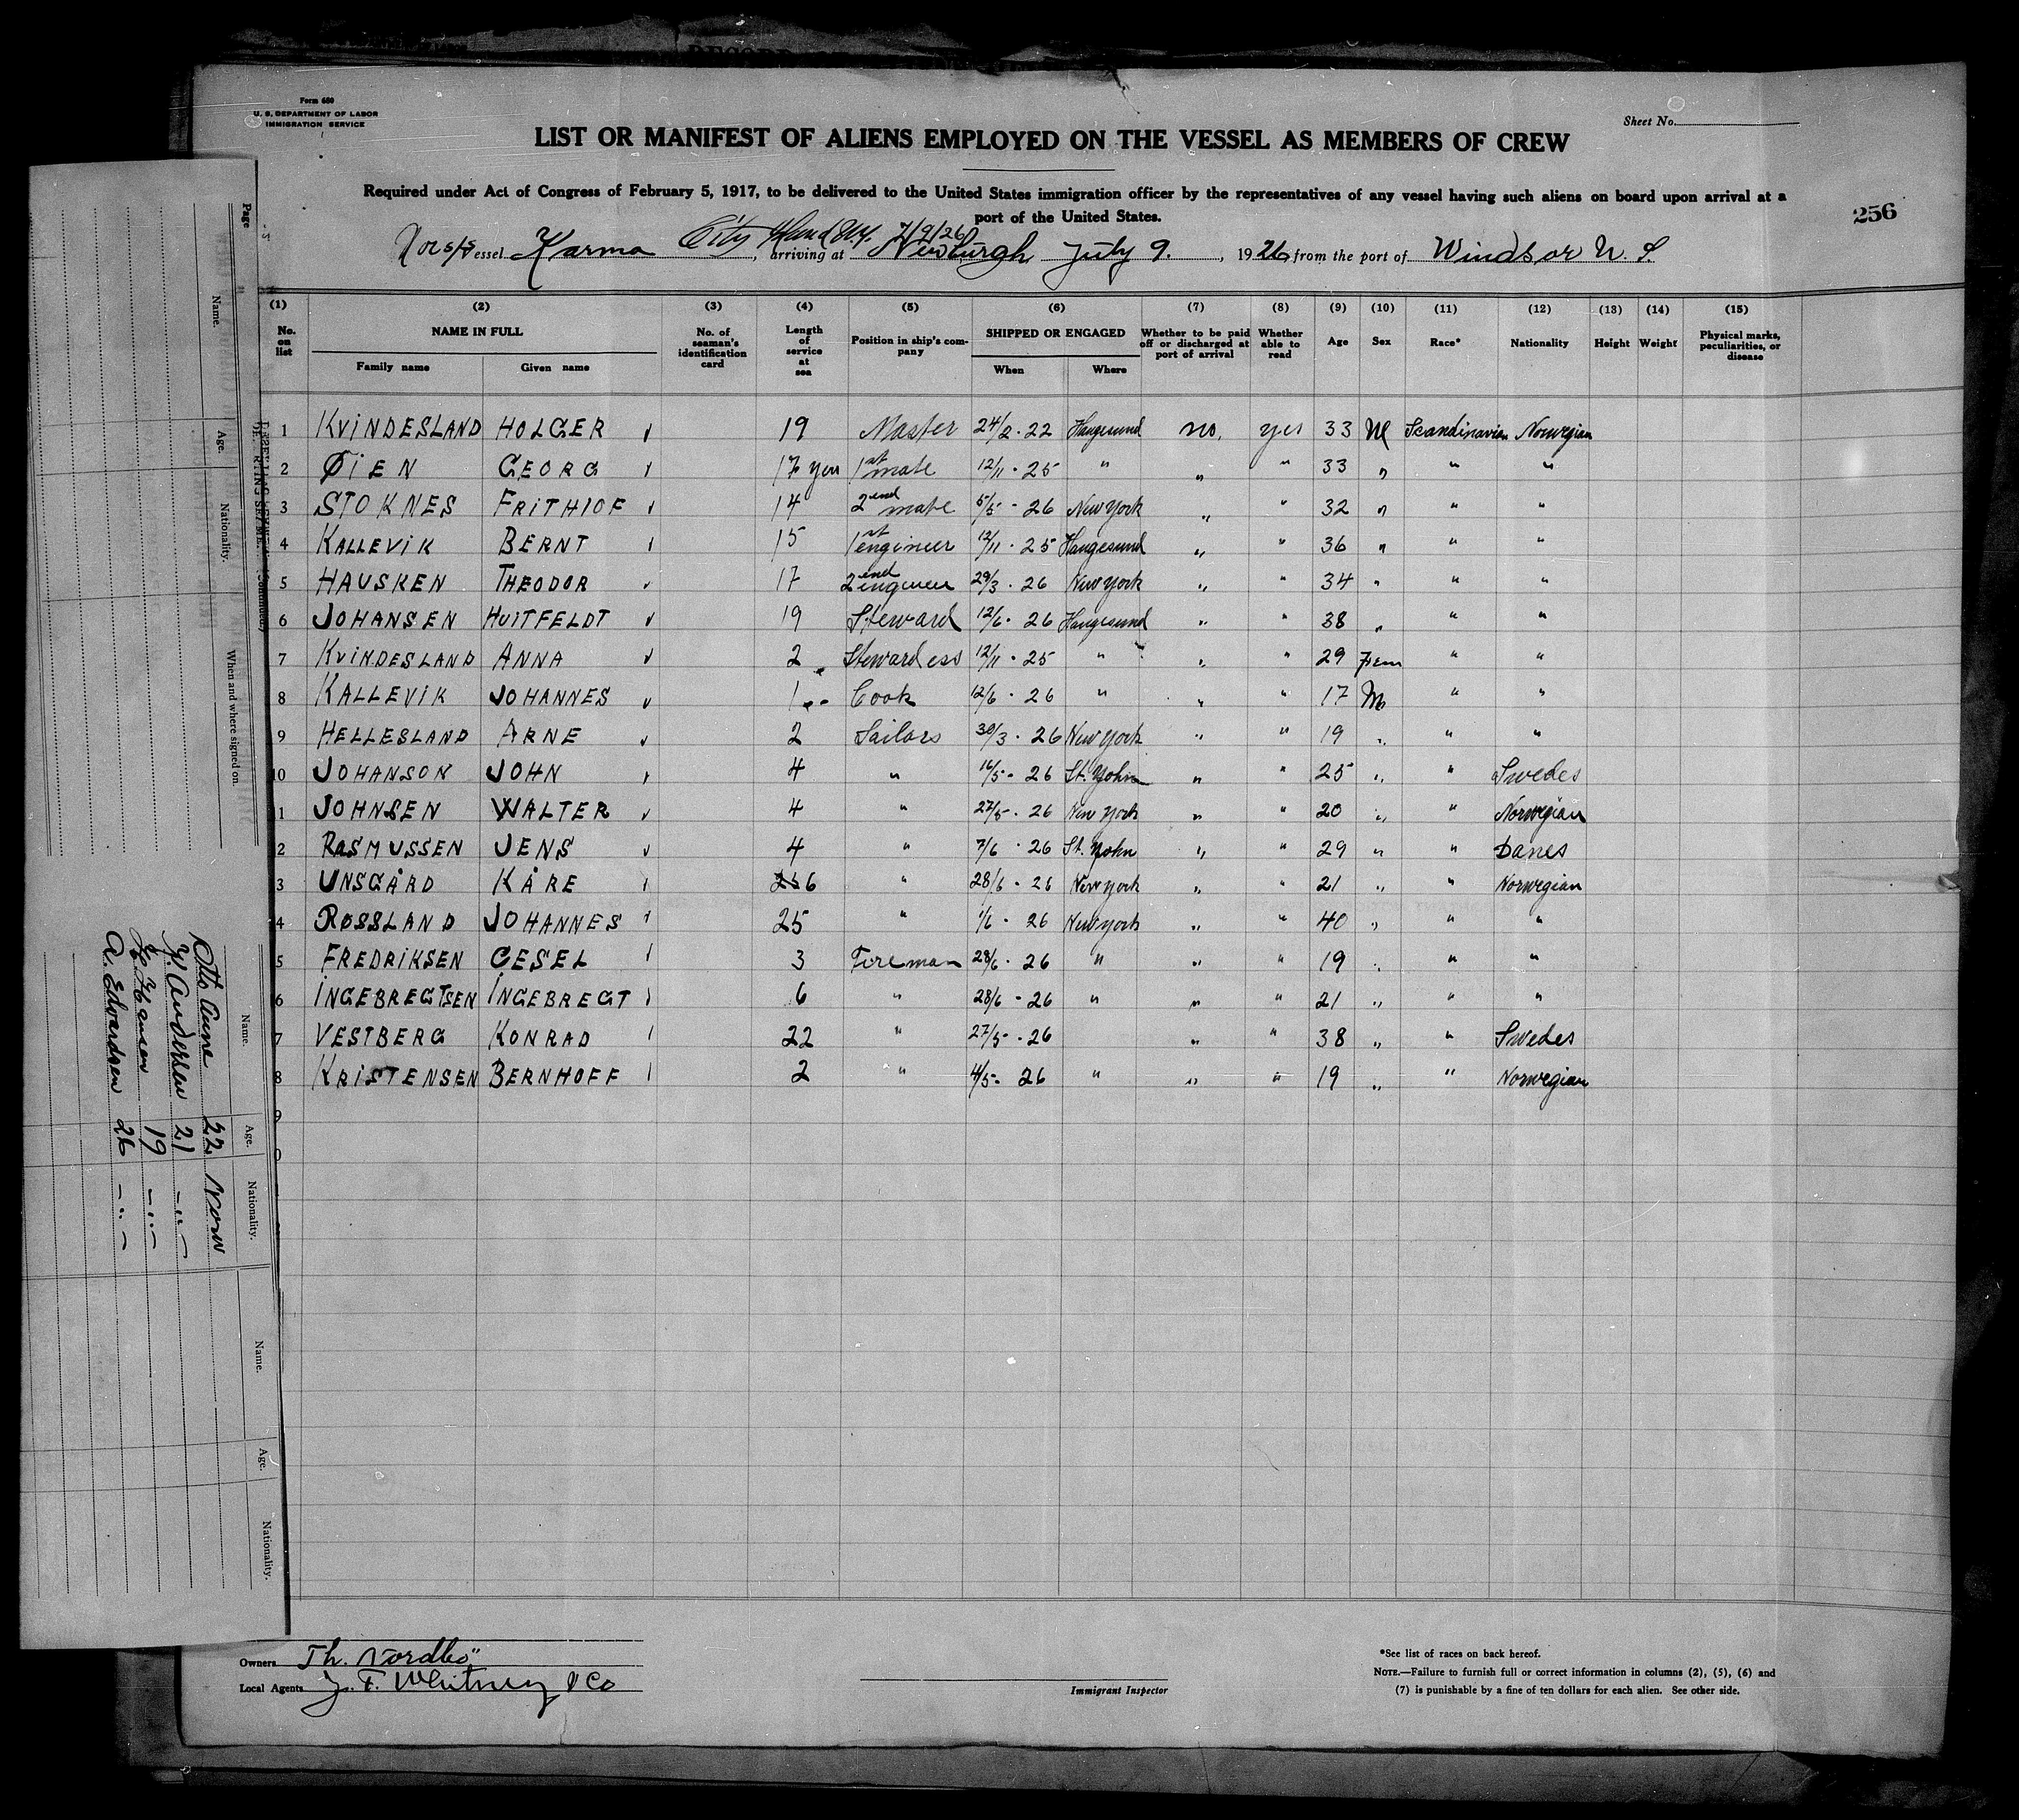 Form 680
U. S. DEPARTMENT OF LABOR
IMMIGRATION SERVICE
Sheet No.
LIST OR MANIFEST OF ALIENS EMPLOYED ON THE VESSEL AS MEMBERS OF CREW
Required under Act of Congress of February 5, 1917, to be delivered to the United States immigration officer by the representatives of any vessel having such aliens on board upon arrival at a
port of the United States.
256
City Island N.Y. 7/9/26
Nor s/s essel Karma, arriving at Newburgh July 9., 1926 from the port of Windsor N. S.
(1) (2) (3) (4) (5) (6) (7) (8) (9) (10) (11) (12) (13) (14) (15)
No. on list NAME IN FULL Family name Given name No. of seaman's identification card Length of service at sea Position in ship's company SHIPPED OR ENGAGED When Where Whether to be paid off or discharged at port of arrival Whether able to read Age Sex Race* Nationality Height Weight Physical marks, peculiarities, or disease
1 KVINDESLAND HOLGER 19 Master 24/2 . 22 Haugesund no, yes 33 M Scandinavian Norwegian
2 ØIEN GEORG 17 year 1st mate 12/11 . 25 " " " 33 " " "
3 STOKNES FRITHIOF 14 2end mate 5/5 - 26 New York " " 32 " " "
4 KALLEVIK BERNT 15 1st engineer 12/11 . 25 Haugesund " " 36 " " "
5 HAUSKEN THEODOR 17 2end engineer 29/3 . 26 New York " " 34 " " "
6 JOHANSEN HUITFELDT 19 Steward 12/6 . 26 Haugesund " " 38 " " "
7 KVINDESLAND ANNA 2 Stewardess 12/11 . 25 " " " 29 Fem " "
8 KALLEVIK JOHANNES 1 Cook 12/6 . 26 " " " 17 M " "
9 HELLESLAND ARNE 2 Sailors 30/3 . 26 New York " " 19 " " "
10 JOHANSON JOHN 4 " 16/5 - 26 St. Yohn " " 25 " " Swedes
1 JOHNSEN WALTER 4 " 27/5 . 26 New York " " 20 " " Norwegian
2 RASMUSSEN JENS 4 " 7/6 . 26 St. Yohn " " 29 " " Danes
3 UNSGÅRD KÅRE 6 " 28/6 - 26 New York " " 21 " " Norwegian
4 RØSSLAND JOHANNES 25 " 1/6 - 26 New York " " 40 " " "
5 FREDRIKSEN GESEL 3 Fireman 28/6 . 26 " " " 19 " " "
6 INGEBREGTSEN INGEBREGT 6 " 28/6 - 26 " " " 21 " " "
7 VESTBERG KONRAD 22 " 27/5 . 26 " " 38 " " Swedes
8 KRISTENSEN BERNHOFF 2 " 4/5 - 26 " " " 19 " " Norwegian
9
0
Page
Name. Age. Nationality. When and where signed on.
Name. Age. Nationality.
Otto Anne 22 Norw
Andersen 21 - " -
Hansen 19 - " -
A. Edvardsen 26 - " -
Name. Age. Nationality.
Owners Th. Nordbö
Local Agents J. F. Whitney & Co
Immigrant Inspector
*See list of races on back hereof.
NOTE.—Failure to furnish full or correct information in columns (2), (5), (6) and
(7) is punishable by a fine of ten dollars for each alien. See other side.